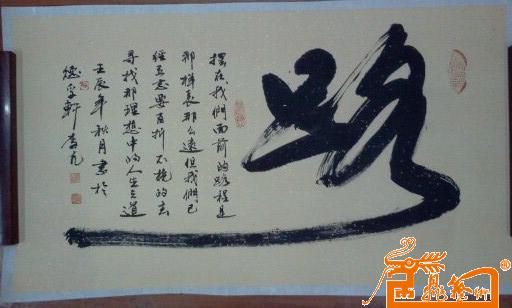 路
摆在我們面前的路程是
那样长那么遠但我們已
经立志要百折不挠的去
寻找那理想中的人生之道
壬辰年秋月書於
軒